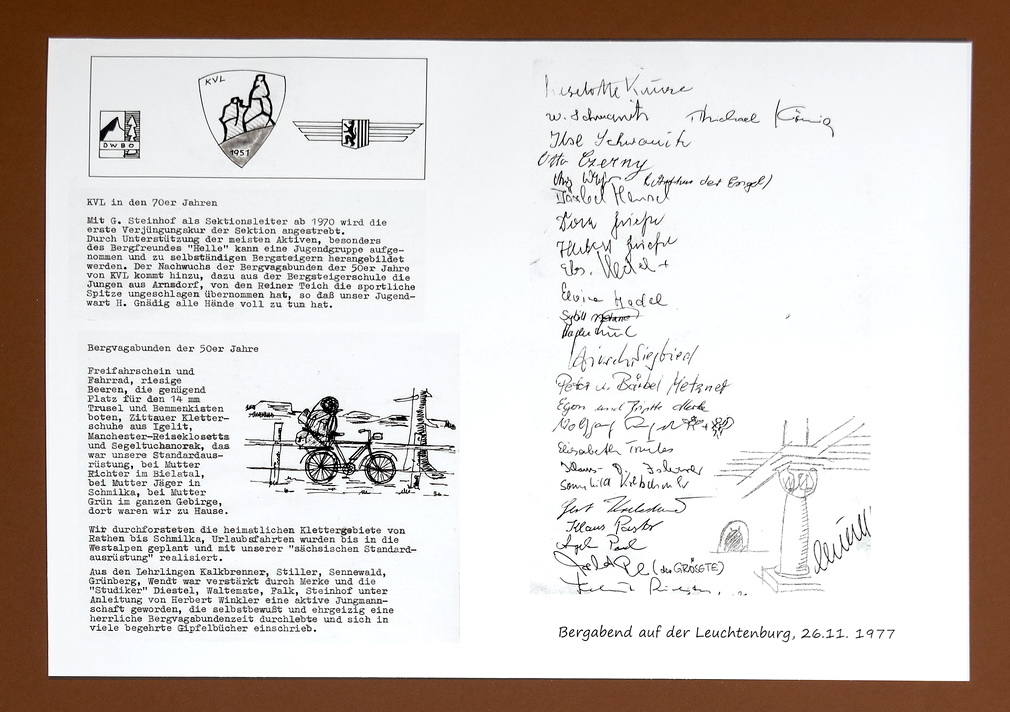 KVL
1951
DWBO
KVL in den 70er Jahren
Mit G. Steinhof als Sektionsleiter ab 1970 wird die
erste Verjüngungskur der Sektion angestrebt.
Durch Unterstützung der meisten Aktiven, besonders
des Bergfreundes "Helle" kann eine Jugendgruppe aufge-
nommen und zu selbständigen Bergsteigern herangebildet
werden. Der Nachwuchs der Bergvagabunden der 50er Jahre
von KVL kommt hinzu, dazu aus der Bergsteigerschule die
Jungen aus Arnsdorf, von den Reiner Teich die sportliche
Spitze ungeschlagen übernommen hat, so daß unser Jugend-
wart H. Gnädig alle Hände voll zu tun hat.
Bergvagabunden der 50er Jahre
Freifahrschein und
Fahrrad, riesige
Beeren, die genügend
Platz für den 14 mm
Trusel und Bemmenkisten
boten, Zittauer Kletter-
schuhe aus Igelit,
Manchester-Reiseklosetts
und Segeltuchanorak, das
war unsere Standardaus-
rüstung, bei Mutter
Richter im Bielatal,
bei Mutter Jäger in
Schmilka, bei Mutter
Grün im ganzen Gebirge,
dort waren wir zu Hause.
Wir durchforsteten die heimatlichen Klettergebiete von
Rathen bis Schmilka, Urlaubsfahrten wurden bis in die
Westalpen geplant und mit unserer "sächsischen Standard-
ausrüstung" realisiert.
Aus den Lehrlingen Kalkbrenner, Stiller, Sennewald,
Grünberg, Wendt war verstärkt durch Merke und die
"Studiker" Diestel, Waltemate, Falk, Steinhof unter
Anleitung von Herbert Winkler eine aktive Jungmann-
schaft geworden, die selbstbewußt und ehrgeizig eine
herrliche Bergvagabundenzeit durchlebte und sich in
viele begehrte Gipfelbücher einschrieb.
Liselotte Krause
W. Schwanitz Michael König
Ilse Schwanitz
Otto Czerny
der Engel)
Bärbel
Dora
Elvira Hedel
Sybill
Siegfried
Peter u. Bärbel Metzner
Egon und
Wolfgang
Elisabeth
Klaus
Klaus Pastor
(der GRÖSSTE)
Bergabend auf der Leuchtenburg, 26.11. 1977